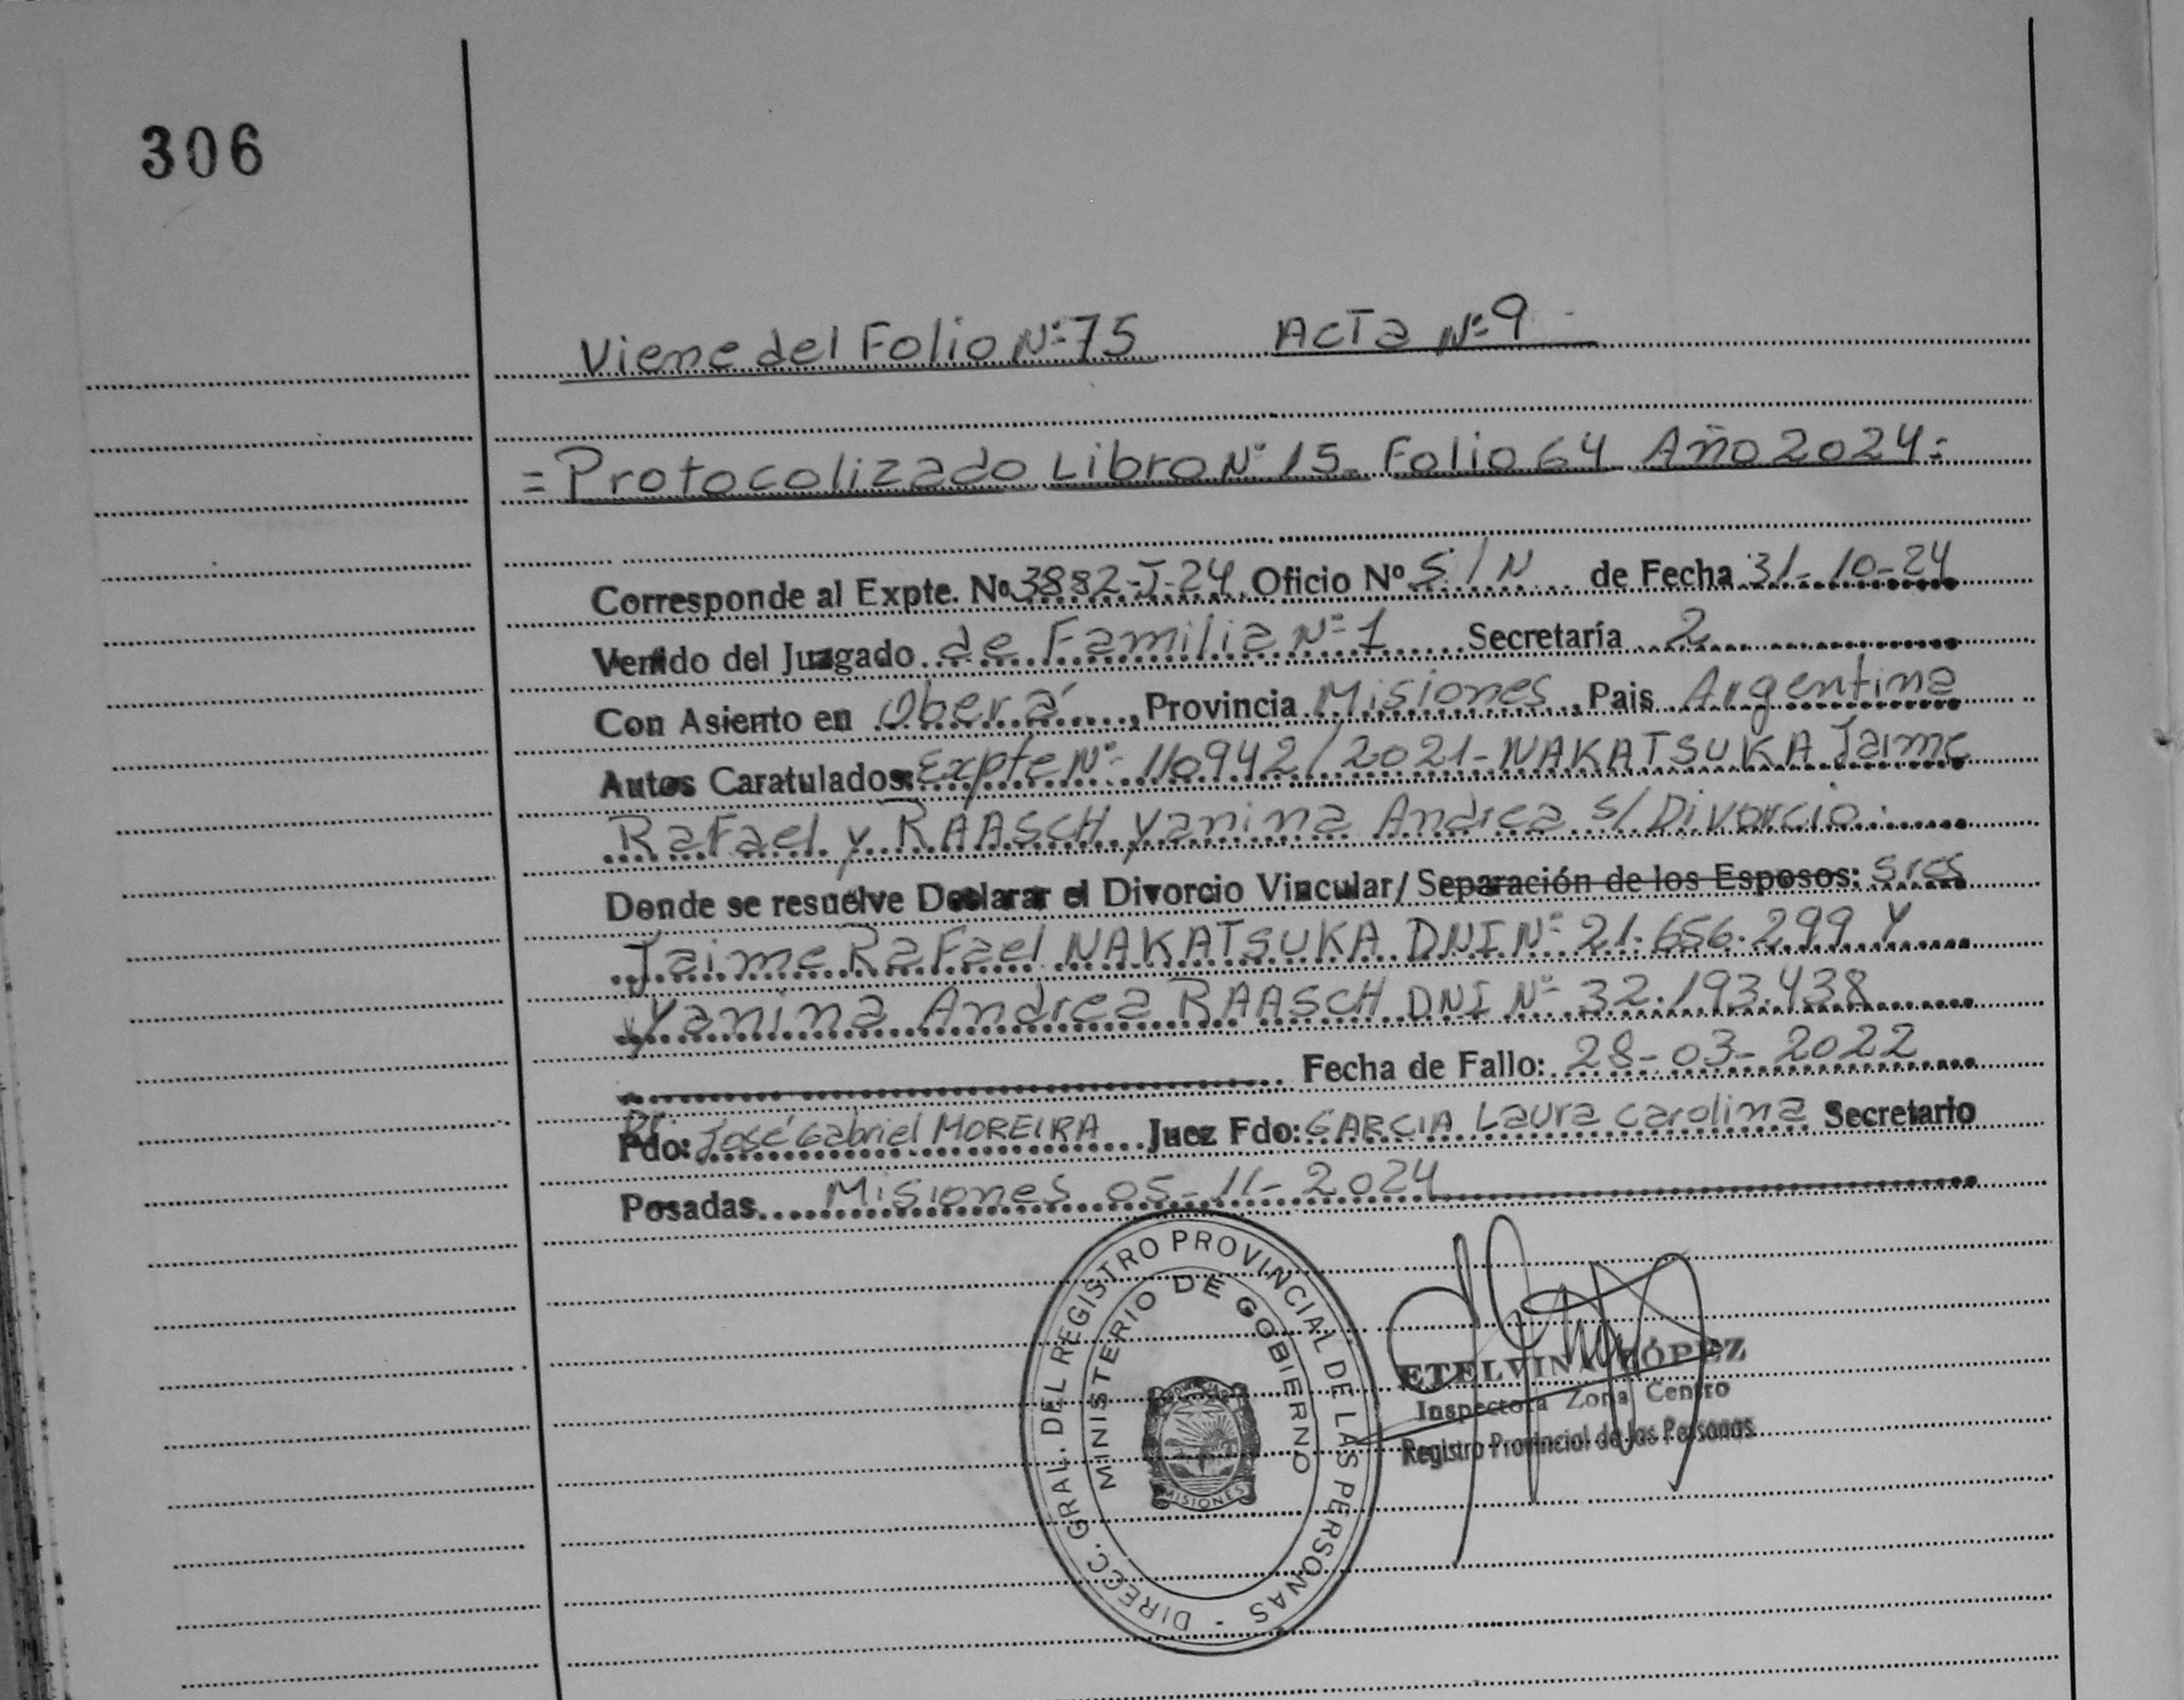 306
Viene del Folio Nº 75 Acta Nº 9
= Protocolizado Libro Nº 15 - Folio 64 Año 2024 =
Corresponde al Expte. Nº 3882-J-24 Oficio Nº S/N de Fecha 31-10-24
Venido del Juzgado de Familia Nº 1 Secretaría 2
Con Asiento en Oberá, Provincia Misiones, Pais Argentina
Autos Caratulados: Expte Nº 110942/2021- NAKATSUKA Jaime
Rafael y RAASCH Yanina Andrea s/ Divorcio.
Donde se resuelve Declarar el Divorcio Vincular/ Separación de los Esposos: sres
Jaime Rafael NAKATSUKA DNI Nº 21.656.299 Y
Yanina Andrea RAASCH DNI Nº 32.193.438
Fecha de Fallo: 28-03-2022
Fdo: Dr. José Gabriel MOREIRA Juez Fdo: GARCIA Laura Carolina Secretario
Posadas Misiones 05-11-2024
DIRECC. GRAL. DEL REGISTRO PROVINCIAL DE LAS PERSONAS -
MINISTERIO DE GOBIERNO
MISIONES
ETELVINA LÓPEZ
Inspectora Zona Centro
Registro Provincial de las Personas